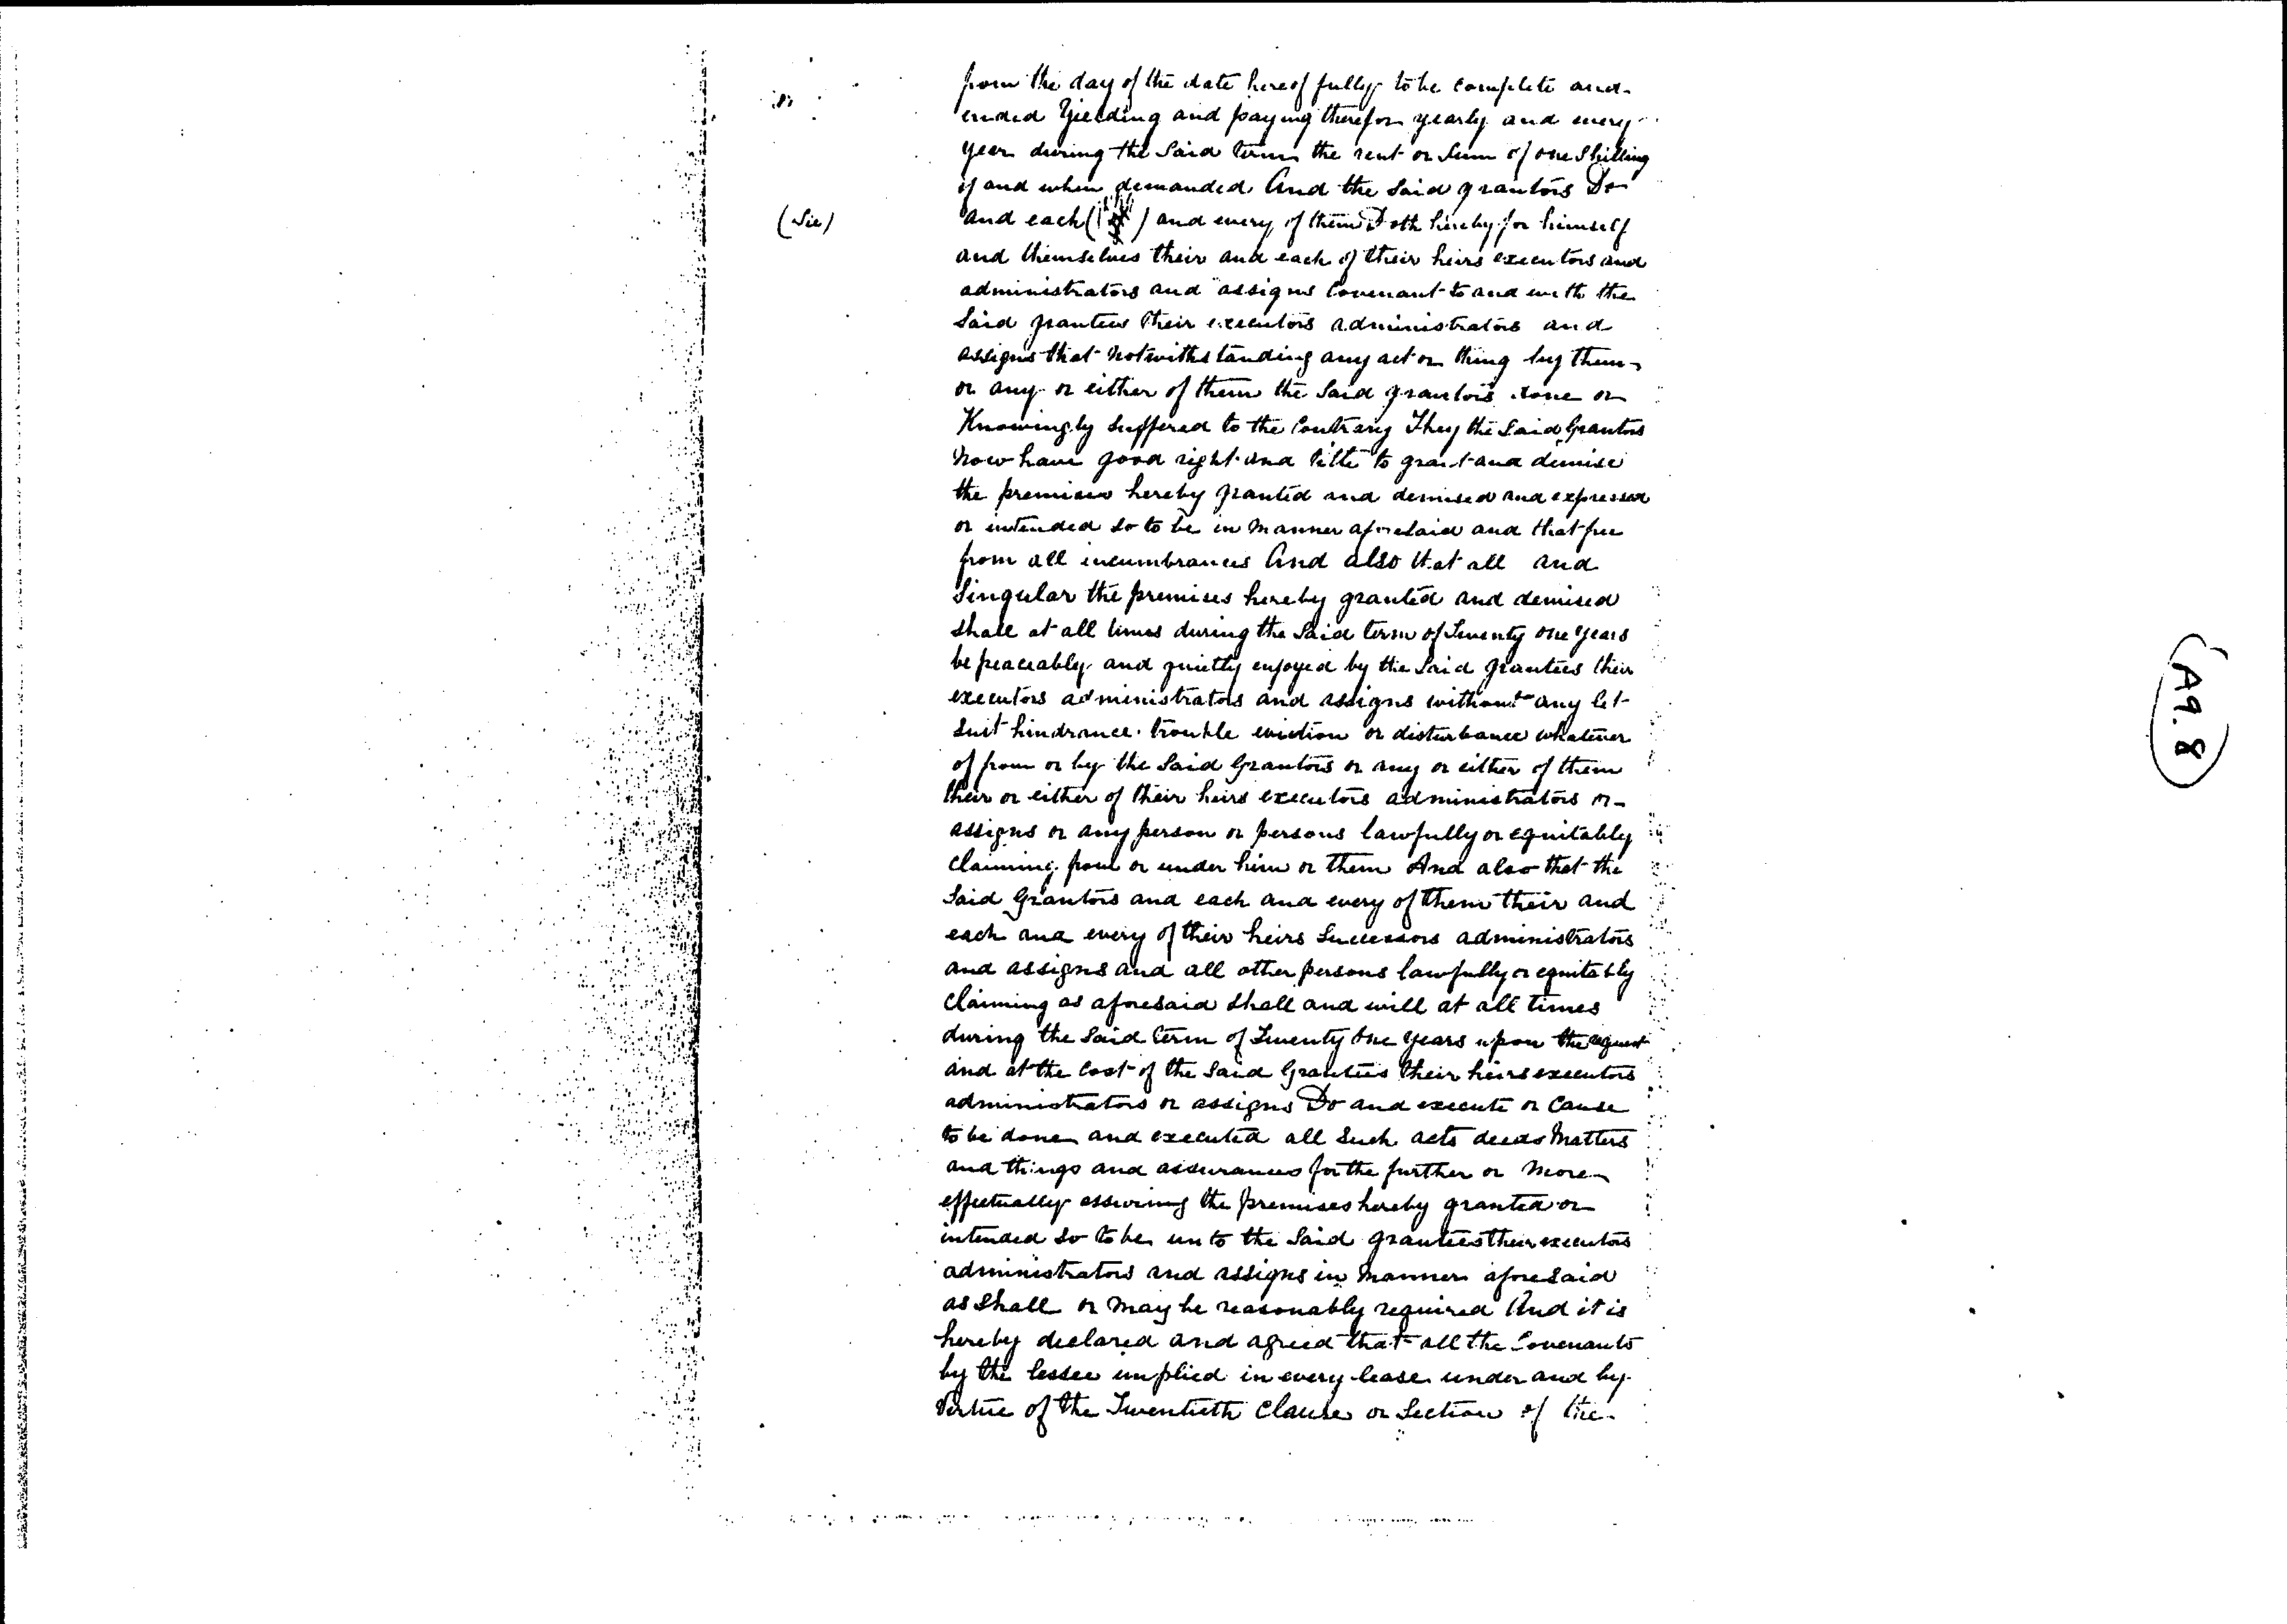 from the day of the date hereof fully to be complete and
ended Yielding and paying therefor yearly and every
year during the said term the rent or sum of one Shilling
if and when demanded And the said grantors Do
(Sic)
and each ( ) and every of them Doth hereby for himself
and themselves their and each of their heirs executors and
administrators and assigns Covenant to and with the
said grantees their executors administrators and
assigns that notwithstanding any act or thing by them
or any or either of them the said grantors done or
Knowingly suffered to the Contrary They the said Grantors
now have good right and title to grant and demise
the premises hereby granted and demised and expressed
or intended so to be in manner aforesaid and that free
from all incumbrances And also that all and
Singular the premises hereby granted and demised
shall at all times during the said term of Twenty one years
be peaceably and quietly enjoyed by the said grantees their
executors administrators and assigns without any let
suit hindrance trouble eviction or disturbance whatever
of from or by the said Grantors or any or either of them
their or either of their heirs executors administrators or
assigns or any person or persons lawfully or equitably
claiming from or under him or them And also that the
said Grantors and each and every of them their and
each and every of their heirs Successors administrators
and assigns and all other persons lawfully or equitably
claiming as aforesaid shall and will at all times
during the said term of Twenty One years upon the request
and at the cost of the said Grantees their heirs executors
administrators or assigns Do and execute or Cause
to be done and executed all such acts deeds Matters
and things and assurances for the further or more
effectually assuring the premises hereby granted or
intended so to be unto the said grantees their executors
administrators and assigns in manner aforesaid
as shall or may be reasonably required And it is
hereby declared and agreed that all the Covenants
by the lessee implied in every lease under and by
Virtue of the Twentieth Clause or Section of the
A9.8